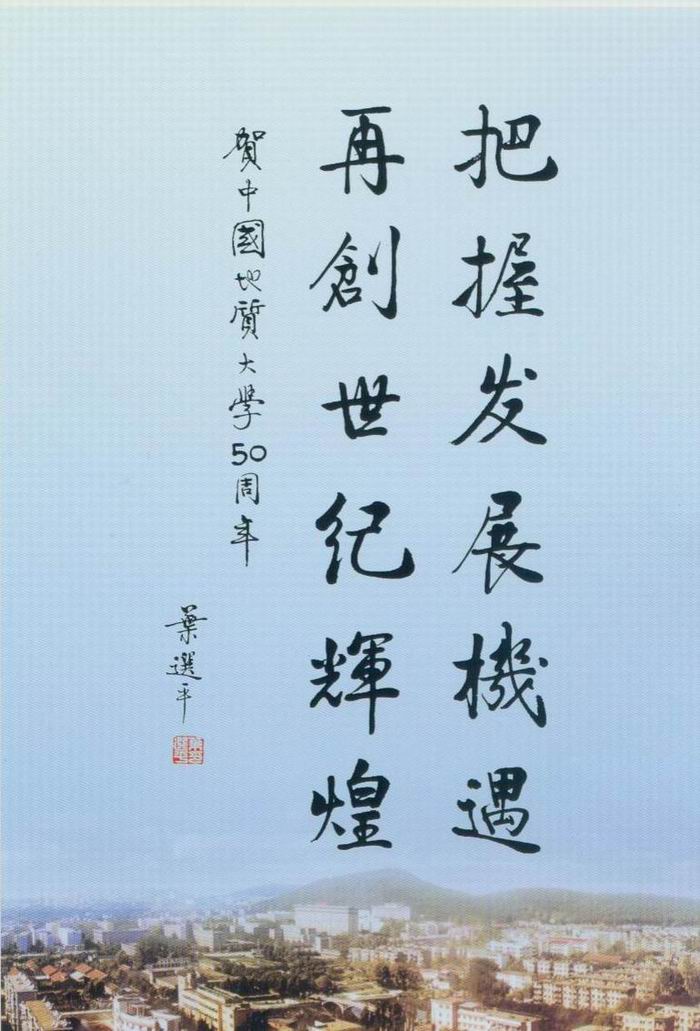 把握发展機遇
再創世纪輝煌
賀中國地质大學50周年
葉選平